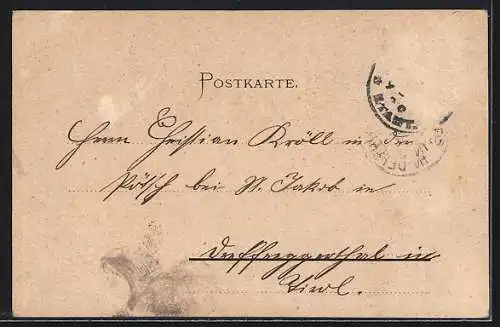 POSTKARTE.
Herrn Christian Kröll in der
Pötsch bei St. Jakob in
Deffreggenthal in
Tirol.